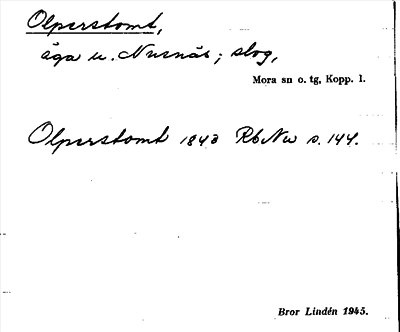 Olperstomt,
äga u. Nusnäs; slog,
Mora sn o. tg, Kopp. l.
Olperstomt 1843 RbNu s. 144.
Bror Lindén 1945.